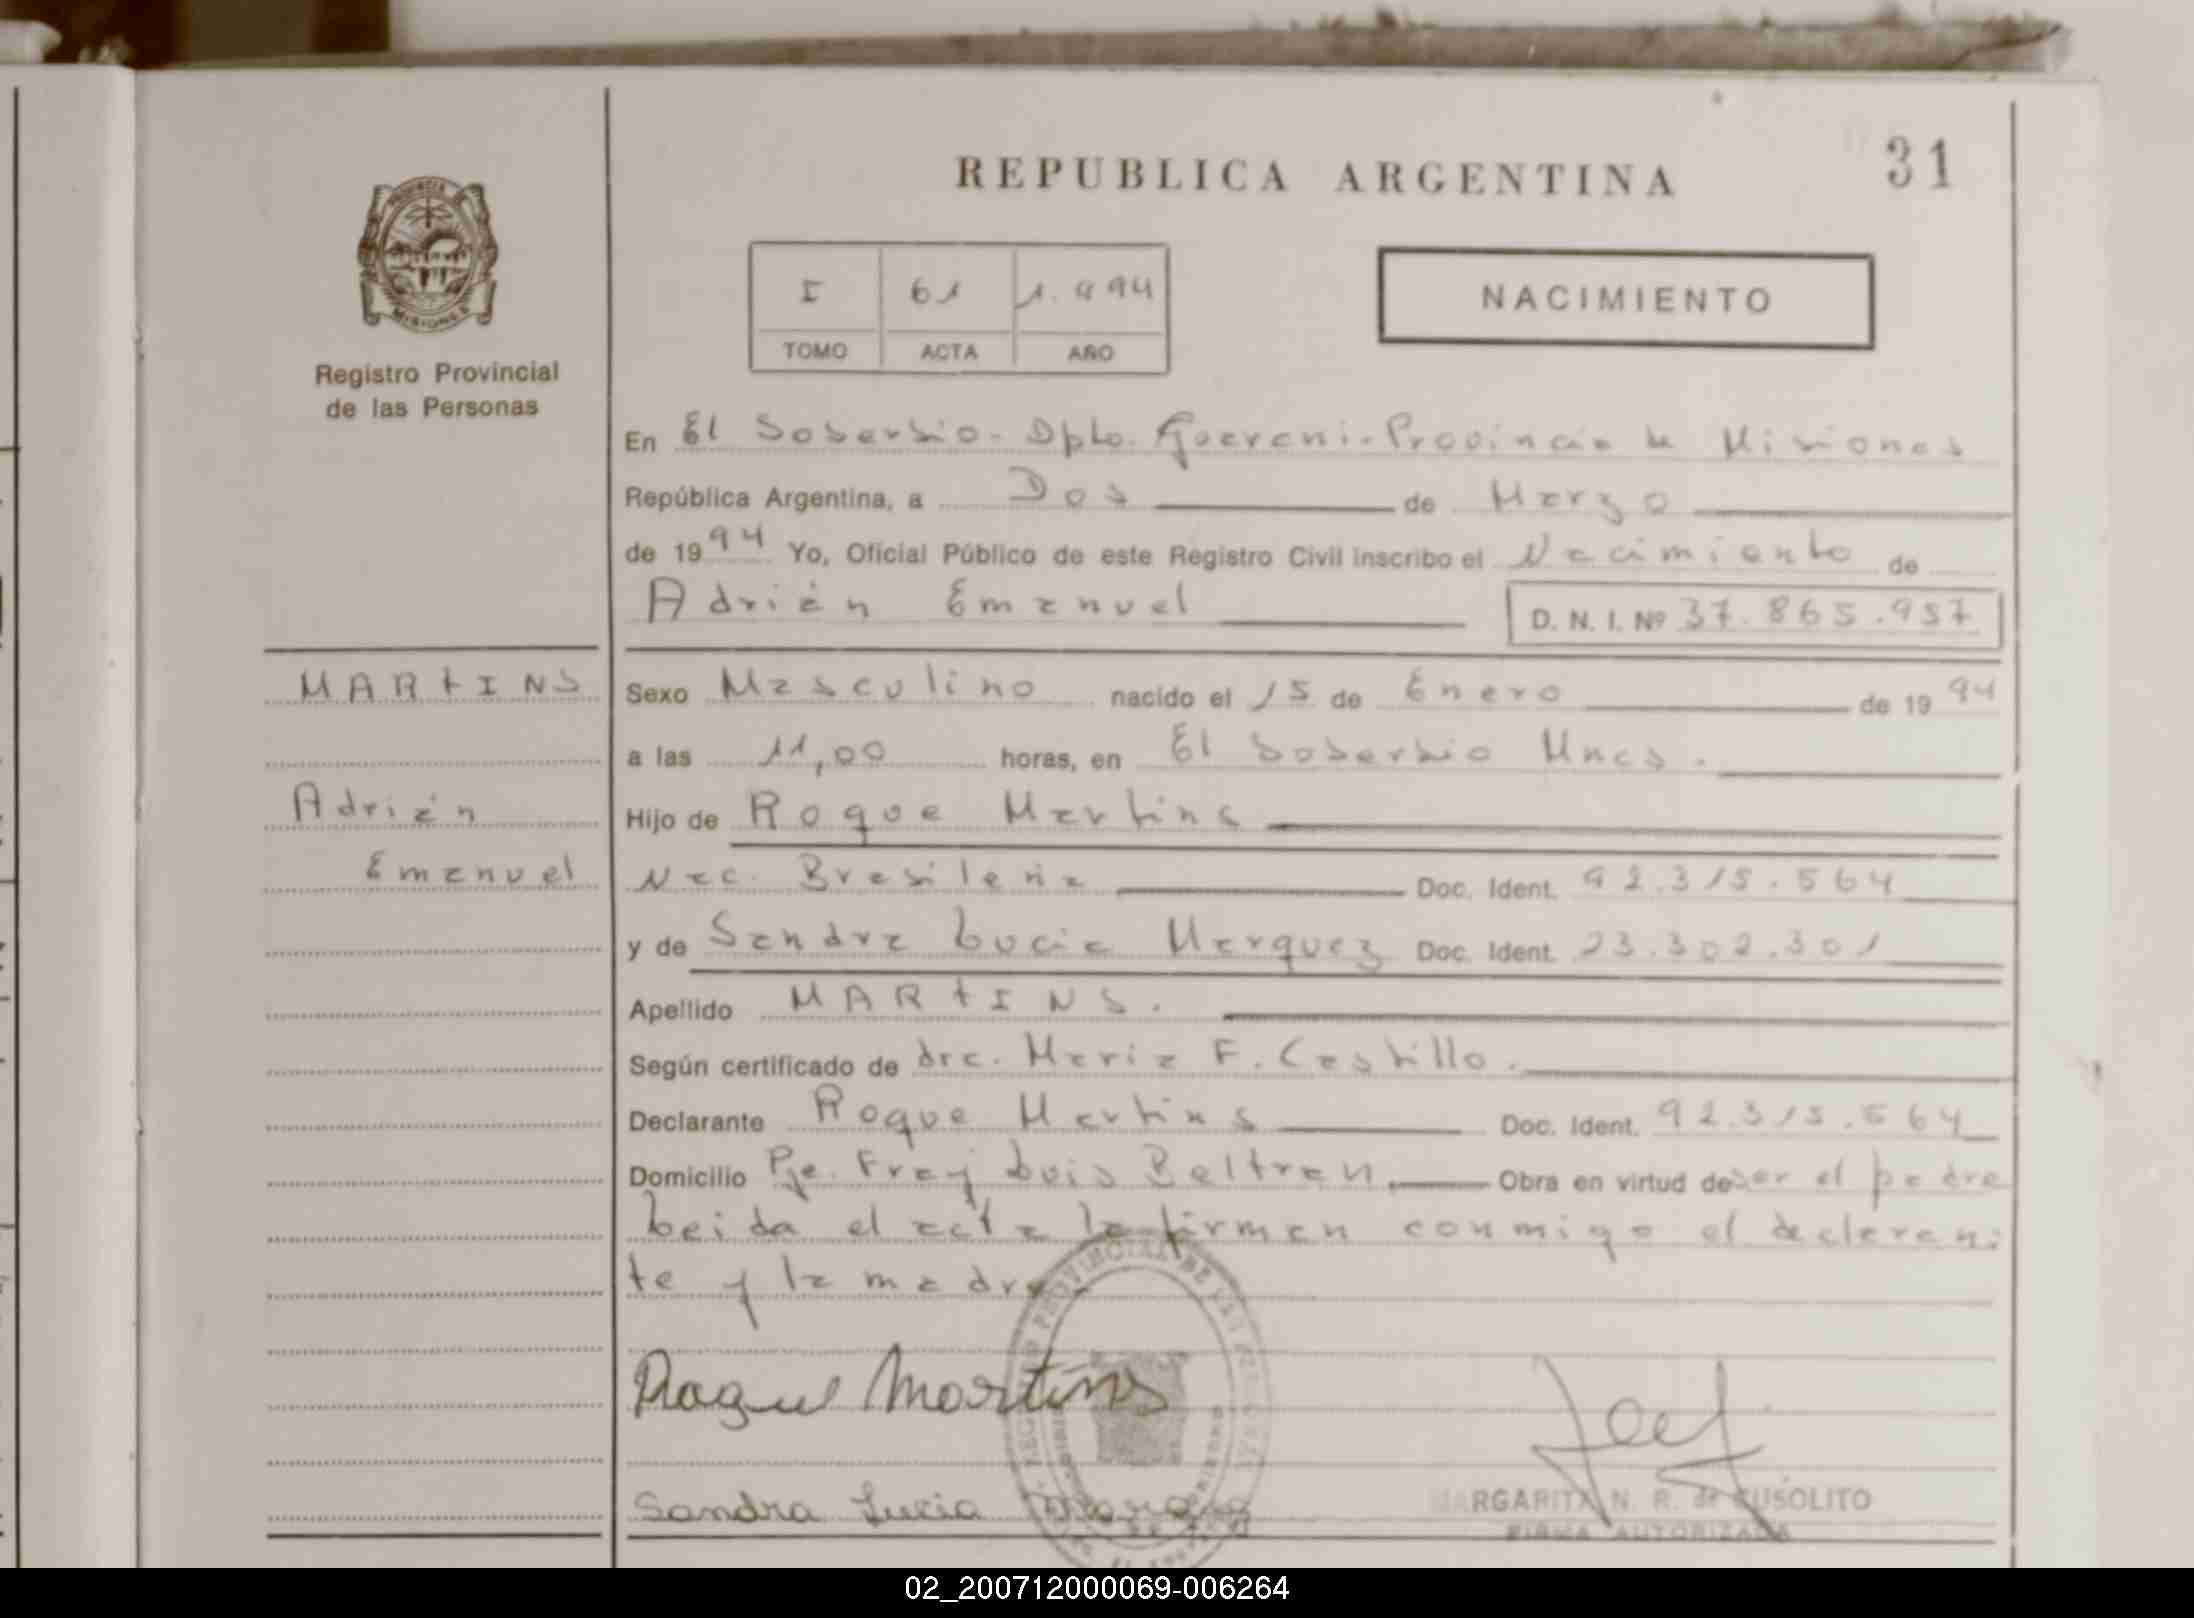 REPUBLICA ARGENTINA
31
PROVINCIA
MISIONES
Registro Provincial
de las Personas
I 61 1.994
TOMO ACTA AÑO
NACIMIENTO
En El Soberbio - Dpto. Guarani - Provincia de Misiones
República Argentina, a Dos de Marzo
de 1994 Yo, Oficial Público de este Registro Civil inscribo el Nacimiento de
Adrián Emanuel D. N. I. Nº 37.865.957
MARTINS
Adrián
Emanuel
Sexo Masculino nacido el 15 de Enero de 1994
a las 11,00 horas, en El Soberbio Mnes.
Hijo de Roque Martins
Nac. Brasileña Doc. Ident. 92.315.564
y de Sandra Lucia Marquez Doc. Ident. 23.302.301
Apellido MARTINS.
Según certificado de dra. Maria F. Castillo.
Declarante Roque Martins Doc. Ident. 92.315.564
Domicilio Pje. Fray Luis Beltran, Obra en virtud de ser el padre
Leida el acta la firman conmigo el declaran-
te y la madre
Roque Martins
Sandra Lucia
MARGARITA N. R. de CUSOLITO
FIRMA AUTORIZADA
02_200712000069-006264